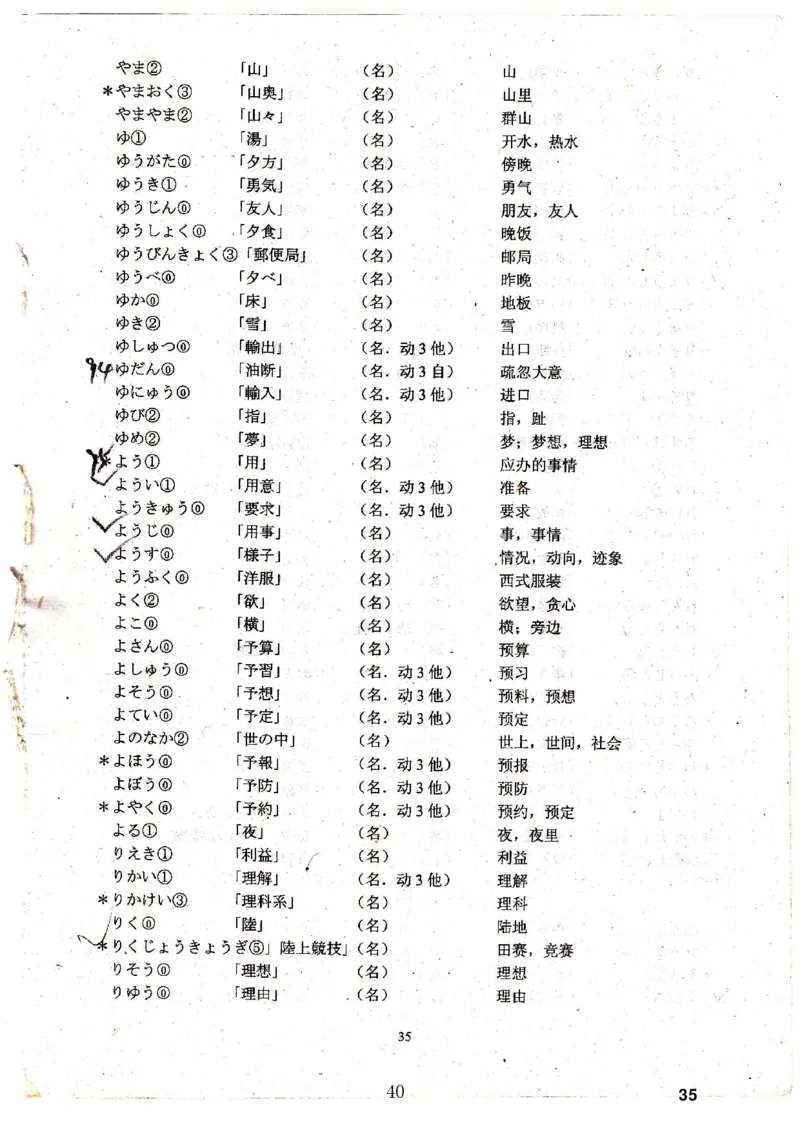 やま② 「山」 （名） 山
*やまおく③ 「山奥」 （名） 山里
やまやま② 「山々」 （名） 群山
ゆ① 「湯」 （名） 开水，热水
ゆうがた⓪ 「夕方」 （名） 傍晚
ゆうき① 「勇気」 （名） 勇气
ゆうじん⓪ 「友人」 （名） 朋友，友人
ゆうしょく⓪ 「夕食」 （名） 晚饭
ゆうびんきょく③「郵便局」 （名） 邮局
ゆうべ⓪ 「夕べ」 （名） 昨晚
ゆか⓪ 「床」 （名） 地板
ゆき② 「雪」 （名） 雪
ゆしゅつ⓪ 「輸出」 （名．动3他） 出口
94 ゆだん⓪ 「油断」 （名．动3自） 疏忽大意
ゆにゅう⓪ 「輸入」 （名．动3他） 进口
ゆび② 「指」 （名） 指，趾
ゆめ② 「夢」 （名） 梦；梦想，理想
*よう① 「用」 （名） 应办的事情
ようい① 「用意」 （名．动3他） 准备
ようきゅう⓪ 「要求」 （名．动3他） 要求
ようじ⓪ 「用事」 （名） 事，事情
ようす⓪ 「様子」 （名） 情况，动向，迹象
ようふく⓪ 「洋服」 （名） 西式服装
よく② 「欲」 （名） 欲望，贪心
よこ⓪ 「横」 （名） 横；旁边
よさん⓪ 「予算」 （名） 预算
よしゅう⓪ 「予習」 （名．动3他） 预习
よそう⓪ 「予想」 （名．动3他） 预料，预想
よてい⓪ 「予定」 （名．动3他） 预定
よのなか② 「世の中」 （名） 世上，世间，社会
*よほう⓪ 「予報」 （名．动3他） 预报
よぼう⓪ 「予防」 （名．动3他） 预防
*よやく⓪ 「予約」 （名．动3他） 预约，预定
よる① 「夜」 （名） 夜，夜里
りえき① 「利益」 （名） 利益
りかい① 「理解」 （名．动3他） 理解
*りかけい③ 「理科系」 （名） 理科
りく⓪ 「陸」 （名） 陆地
*りくじょうきょうぎ⑤」陸上競技」（名） 田赛，竞赛
りそう⓪ 「理想」 （名） 理想
りゆう⓪ 「理由」 （名） 理由
35
40
35